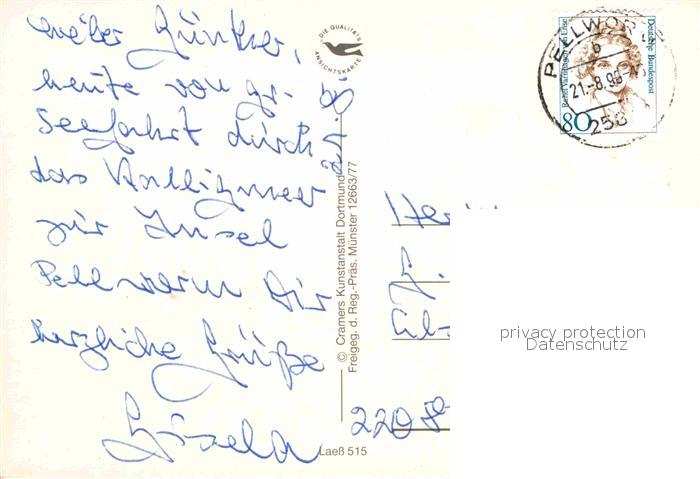 Lieber Günther,
heute von gr.
Seefahrt durch
das Halligmeer
zur Insel
Pellworm Dir
herzliche Grüße
Gisela
21.8.
DIE QUALITÄTS
ANSICHTSKARTE
© Cramers Kunstanstalt Dortmund
Freigeg. d. Reg.-Präs. Münster 12663/77
Laeß 515
PELLWORM
b
21.-8.90
Rahel Varnhagen von Ense
Deutsche Bundespost
80
G.
220
privacy protection
Datenschutz